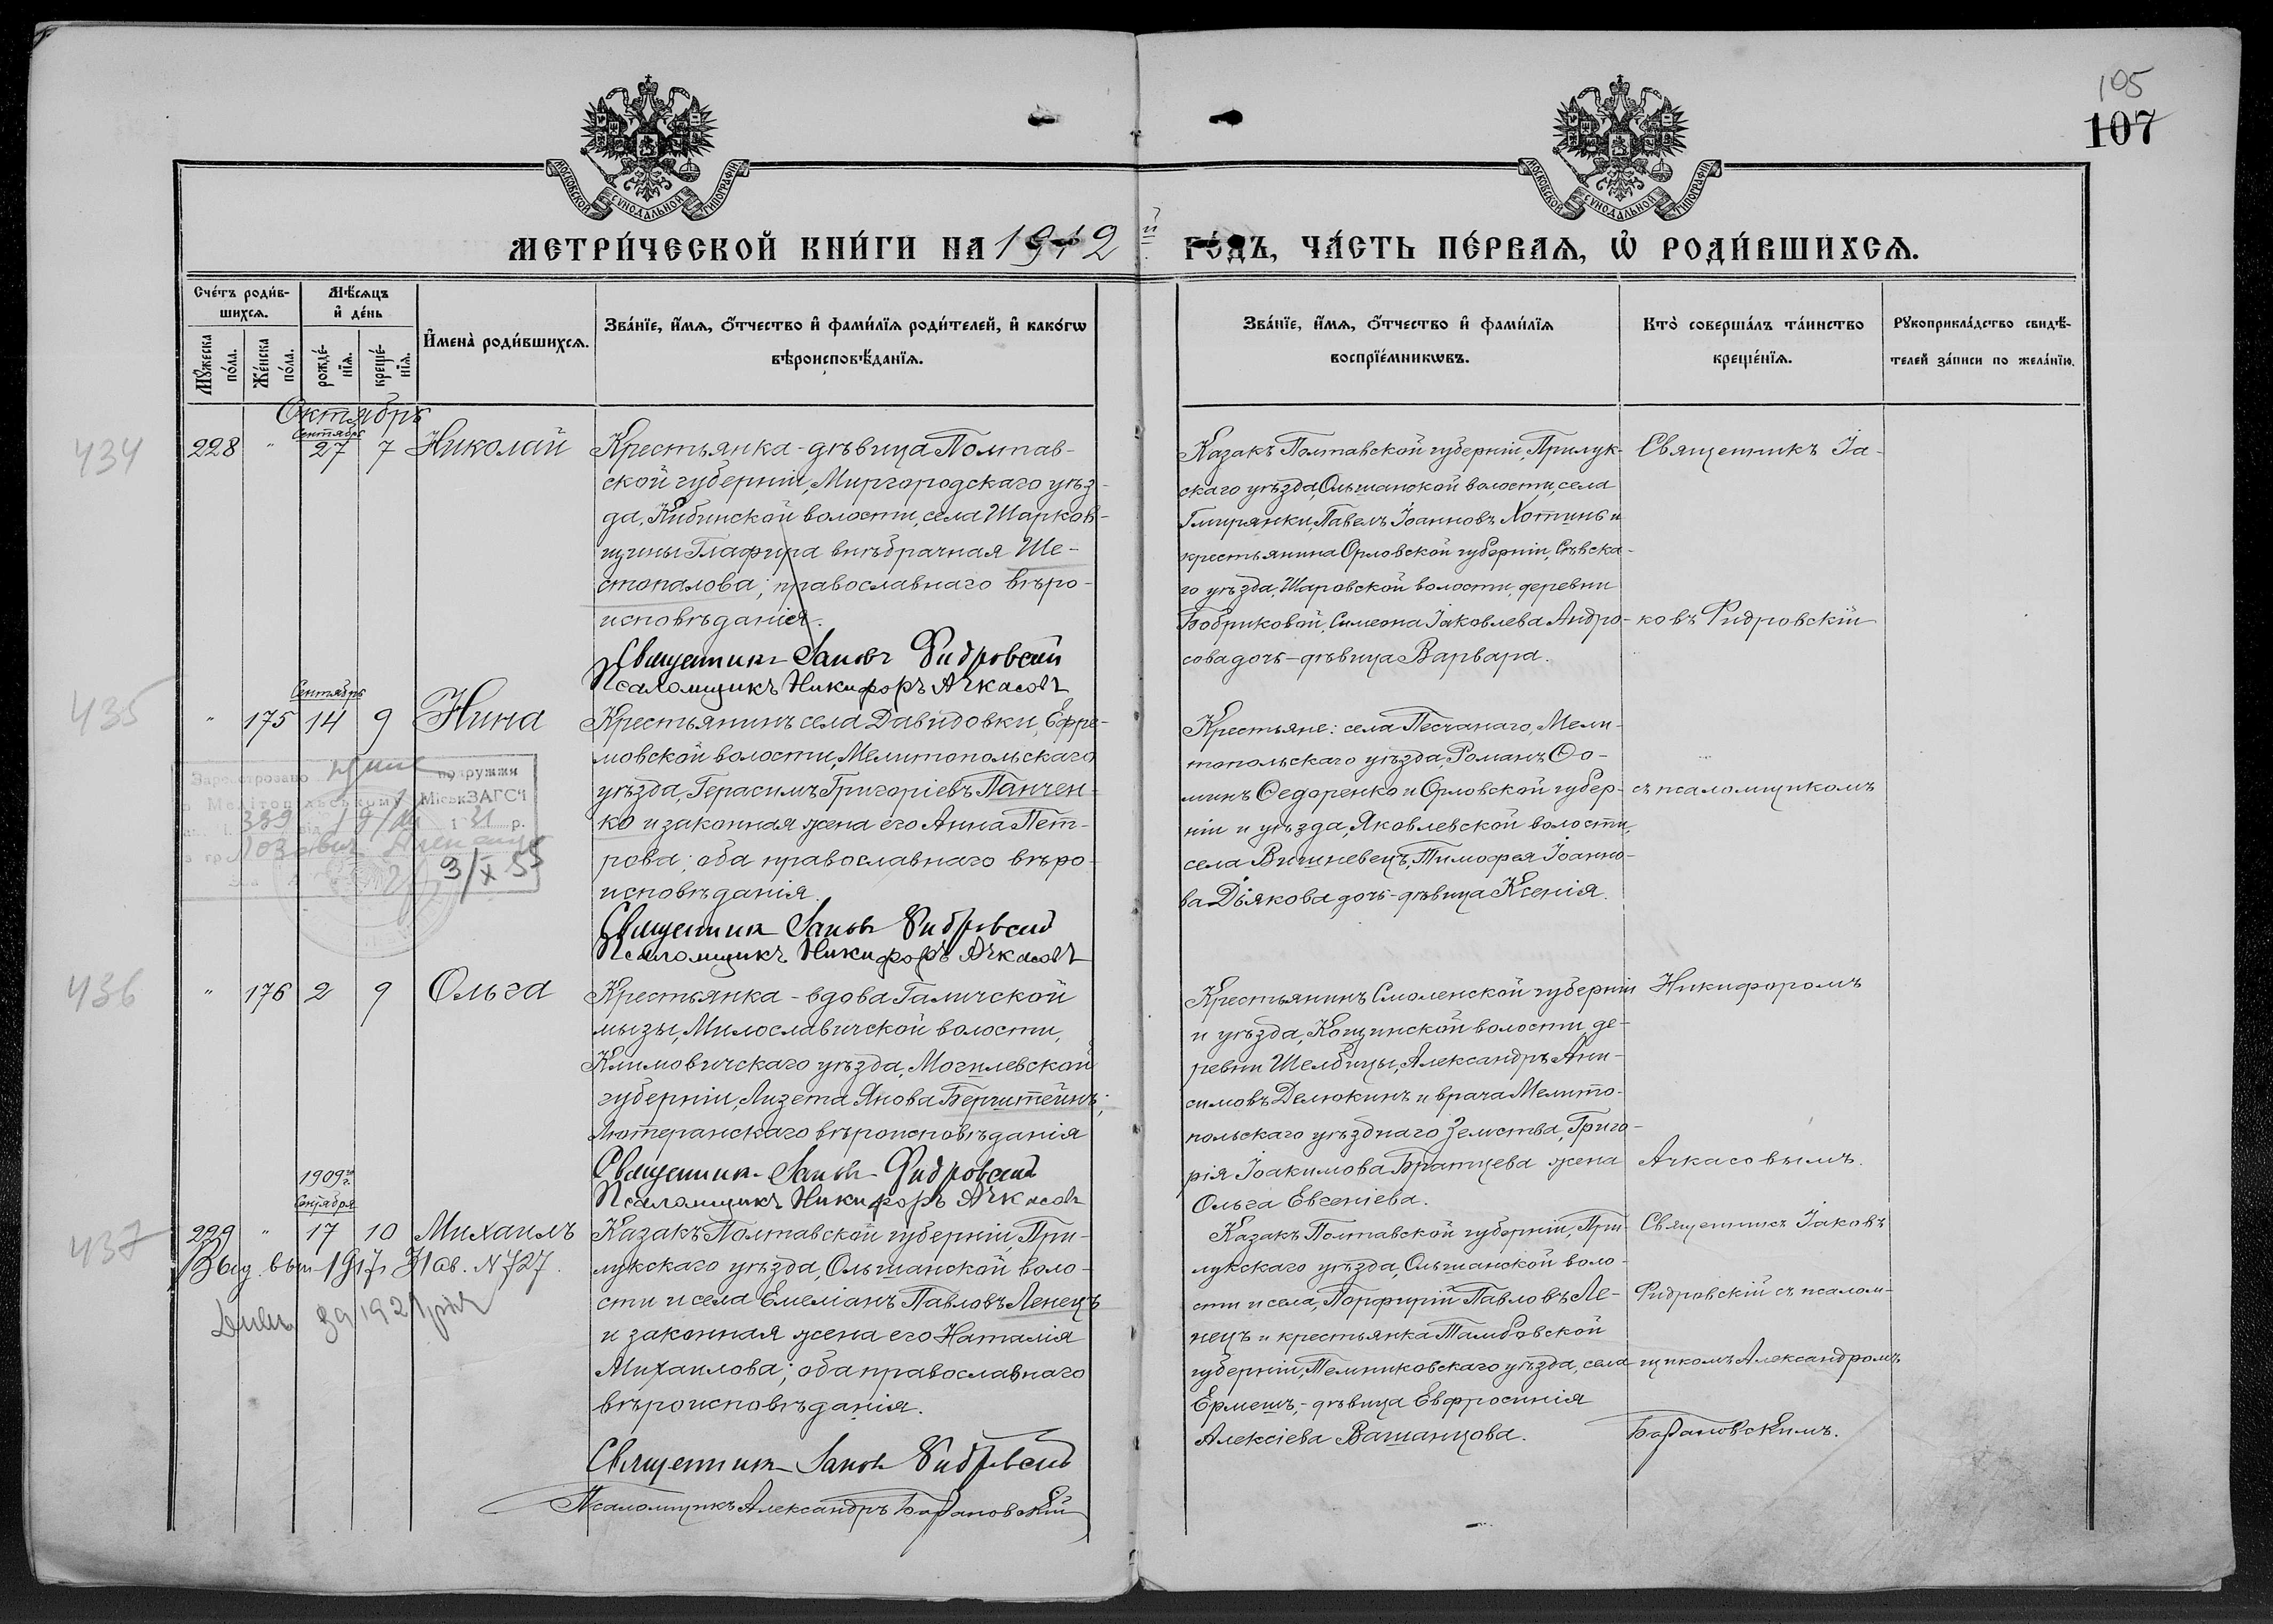 105
107
МОСКОВСКОЙ СУНОДАЛЬНОЙ ТИПОГРАФІИ
МОСКОВСКОЙ СУНОДАЛЬНОЙ ТИПОГРАФІИ
МЕТРИ́ЧЕСКОЙ КНИ́ГИ НА 1912 й ГО́ДЪ, ЧА́СТЬ ПЕ́РВАѦ, Ѡ҆ РОДИ́ВШИХСѦ.
Сче́тъ роди́в-
шихсѧ.
Мꙋ́жеска по́ла.
Же́нска по́ла.
Мѣ́сѧцъ
и҆ де́нь
рожде́-нїѧ.
креще́-нїѧ.
И҆мена̀ роди́вшихсѧ.
Зва́нїе, и҆́мѧ, ѻ҆́тчество и҆ фами́лїѧ роди́телей, и҆ како́гѡ
вѣроисповѣ́данїѧ.
Зва́нїе, и҆́мѧ, ѻ҆́тчество и҆ фами́лїѧ
воспрїе́мникѡвъ.
Кто̀ соверша́лъ та́инство
креще́нїѧ.
Рꙋкоприкла́дство свидѣ́-
телей за́писи по жела́нїю.
Октябрь
434
228 " Сентябрь 27 7 Николай
Крестьянка-дѣвица Полтав-
ской губерніи, Миргородскаго уѣз-
да, Кибинской волости, села Шарков-
щины Глафира внѣбрачная Ше-
стопалова; православнаго вѣро-
исповѣданія.
Священникъ Іаковъ Фидровскій
Псаломщикъ Никифоръ Ачкасовъ
Казакъ Полтавской губерніи, Прилук-
скаго уѣзда, Ольшанской волости, села
Гмирянки, Павелъ Іоанновъ Хотинь и
крестьянина Орловской губерніи, Сѣвска-
го уѣзда, Шаровской волости, деревни
Бобриковой, Симеона Іаковлева Андро-
сова дочь-дѣвица Варвара.
Священникъ Іа-
ковъ Фидровскій
435
" 175 Сентябрь 14 9 Нина
Крестьянинъ села Давидовки, Ефре-
мовской волости, Мелитопольскаго
уѣзда, Герасимъ Григоріевъ Панчен-
ко и законная жена его Анна Пет-
рова; оба православнаго вѣро-
исповѣданія.
Священникъ Іаковъ Фидровскій
Псаломщикъ Никифоръ Ачкасовъ
Крестьяне: села Песчанаго, Мели-
топольскаго уѣзда, Романъ Ѳо-
минъ Ѳедоренко и Орловской губер-
ніи и уѣзда, Яковлевской волости,
села Вишневецъ, Тимофея Іоанно-
ва Дьякова дочь-дѣвица Ксенія.
съ псаломщикомъ
Зареєстровано
Мелітопольському МіськЗАГС'і
339
31 р.
3/X 55
436
" 176 2 9 Ольга
Крестьянка-вдова Галичской
мызы, Милославичской волости,
Климовичскаго уѣзда, Могилевской
губерніи, Лизета Янова Бергштейнъ;
лютеранскаго вѣроисповѣданія
Священникъ Іаковъ Фидровскій
Псаломщикъ Никифоръ Ачкасовъ
Крестьянинъ Смоленской губерніи
и уѣзда, Кощинской волости, де-
ревни Шелбицы, Александръ Ани-
симовъ Делюкинъ и врача Мелито-
польскаго уѣзднаго Земства, Григо-
рія Іоакимова Братцева жена
Ольга Евгеніева.
Никифоромъ
Ачкасовымъ.
437
229 " 1909 г. Сентября 17 10 Михаилъ
Выд. вып. 1917 г. № 727.
1921
Казакъ Полтавской губерніи, При-
лукскаго уѣзда, Ольшанской воло-
сти и села Емеліанъ Павловъ Ленецъ
и законная жена его Наталія
Михаилова; оба православнаго
вѣроисповѣданія.
Священникъ Іаковъ Фидровскій
Псаломщикъ Александръ Барановскій
Казакъ Полтавской губерніи, При-
лукскаго уѣзда, Ольшанской воло-
сти и села, Порфирій Павловъ Ле-
нецъ и крестьянка Тамбовской
губерніи, Темниковскаго уѣзда, села
Ермешъ, - дѣвица Евфросинія
Алексіева Вашанцова.
Священникъ Іаковъ
Фидровскій съ псалом-
щикомъ Александромъ
Барановскимъ.